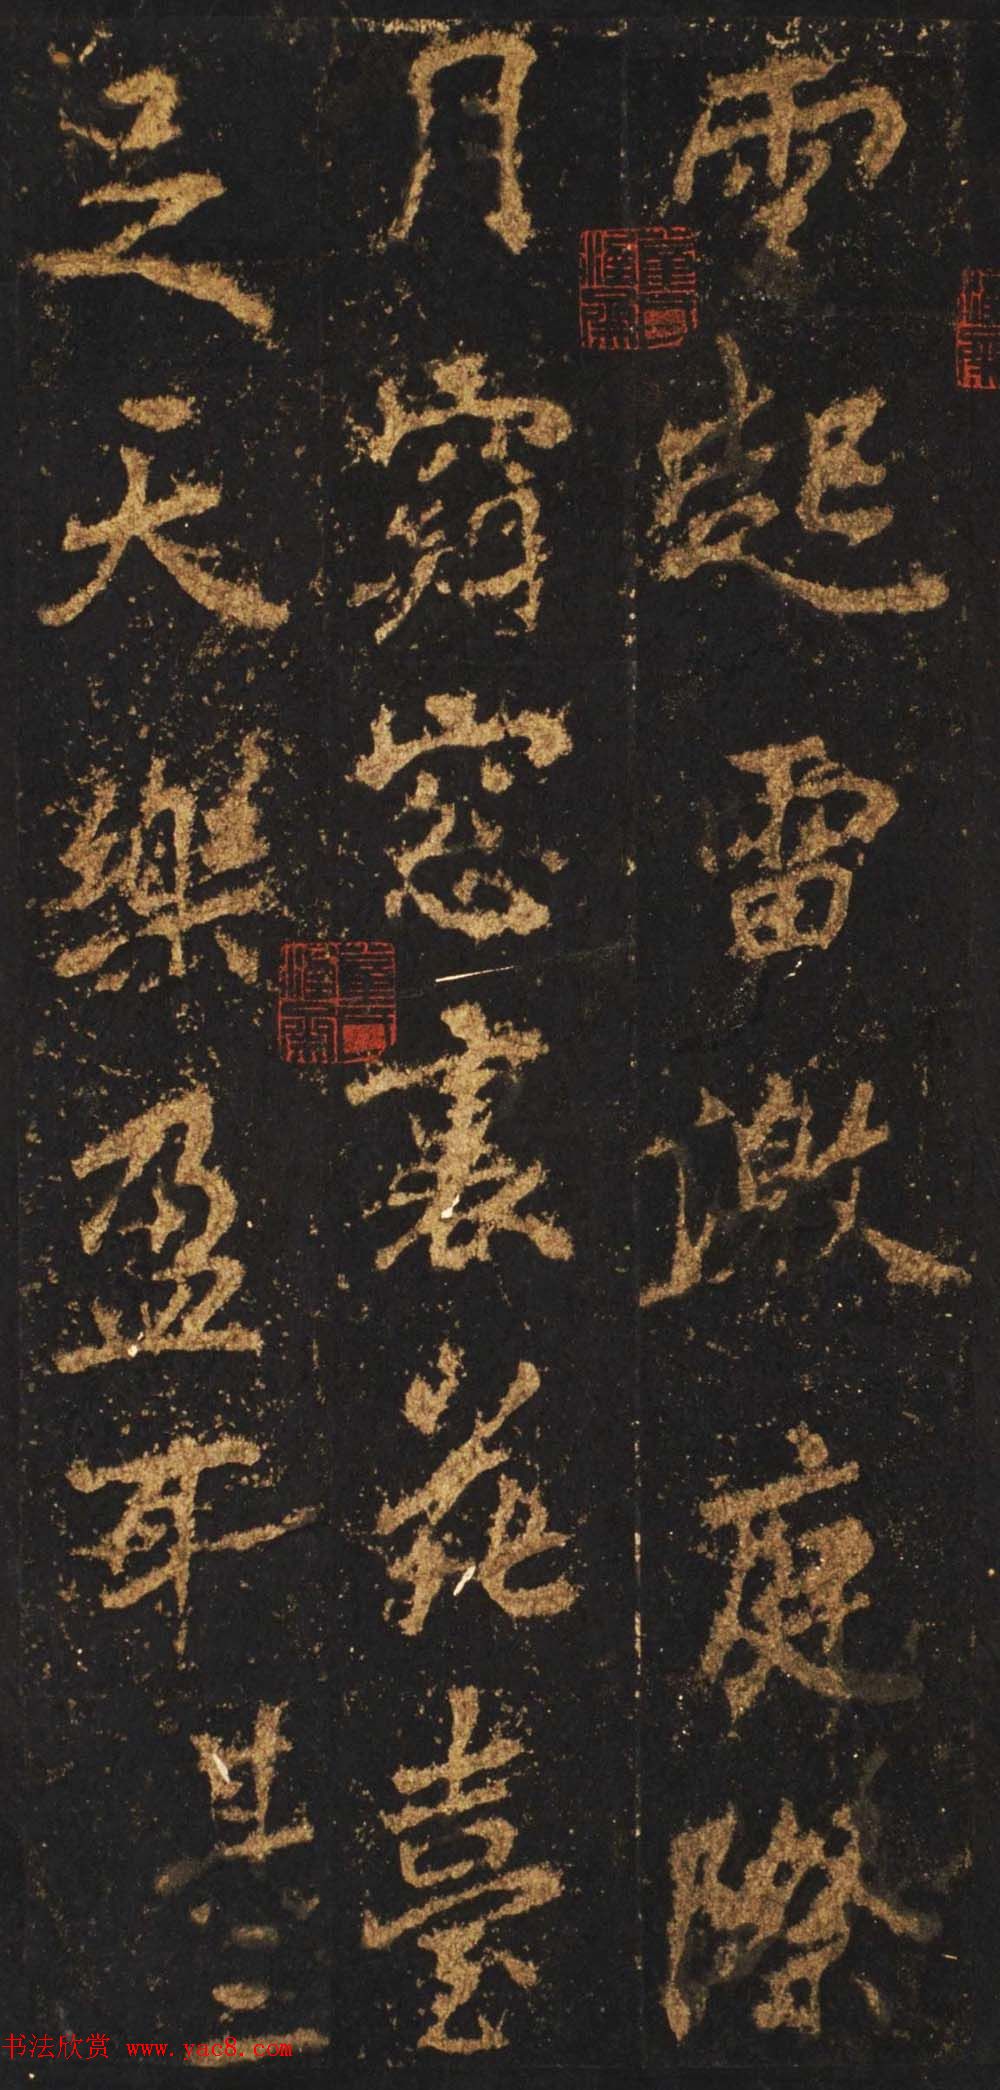 雨起雷激庭際
月窮窓裏花臺
足天樂盈耳
其三
书法欣赏 www.yac8.com